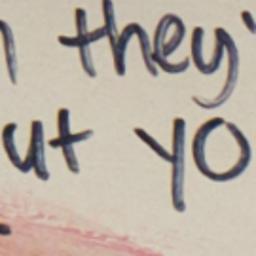 they'
ut yo